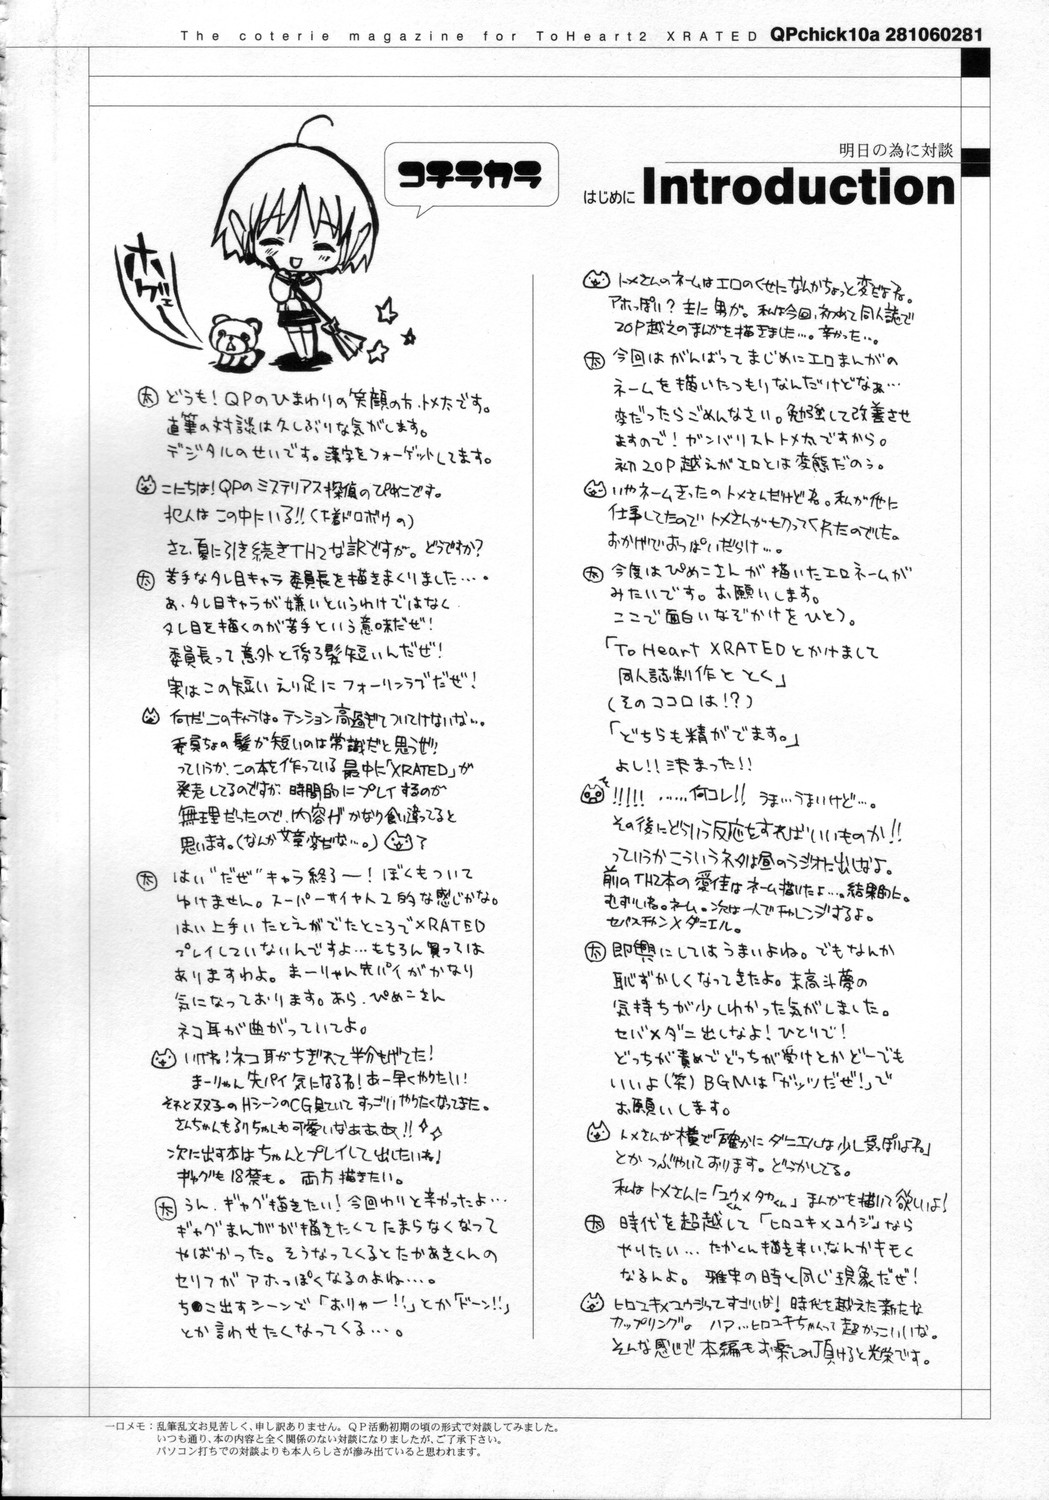 The coterie magazine for ToHeart2 XRATED QPchick10a 281060281
明日の為に対談
はじめに Introduction
コチラカラ
ホゲェー
太 どうも!QPのひまわりの笑顔の方、トメ太です。
直筆の対談は久しぶりな気がします。
デジタルのせいです。漢字をフォーゲットしてます。
こにちは!QPのミステリアス探偵のぴめこです。
犯人はこの中にいる!!(下着ドロボウの)
さて、夏に引き続きTH2な訳ですが。どうですか?
太 苦手なタレ目キャラ委員長を描きまくりました・・・。
あ、タレ目キャラが嫌いというわけではなく、
タレ目を描くのが苦手という意味だぜ!
委員長って意外と後ろ髪短いんだぜ!
実はこの短いえり足にフォーリンラブだぜ!
何だこのキャラは。テンション高過ぎてついてけないな・・。
委員ちょの髪が短いのは常識だと思うぜ!
っていうか、この本を作っている最中に「XRATED」が
発売してるのですが、時間的にプレイするのが
無理だったので、内容がかなり食い違ってると
思います。(なんか文章変だな・・・。)
太 はい“だぜ”キャラ終了ー!ぼくもついて
ゆけません。スーパーサイヤ人2的な感じかな。
はい上手いたとえがでたところでXRATED
プレイしていないんですよ…もちろん買っては
ありますわよ。まーりゃん先パイがかなり
気になっております。あら、ぴめこさん
ネコ耳が曲がっていてよ。
いけね!ネコ耳がちぎれて半分もげてた!
まーりゃん先パイ気になるね!あー早くやりたい!
それと双子のHシーンのCG見ていてすっごいやりたくなってきた。
さんちゃんもるりちゃんも可愛いなぁぁぁぁ!!
次に出す本はちゃんとプレイして出したいね!
ギャグも18禁も。両方描きたい。
太 うん、ギャグ描きたい!今回わりと辛かったよ…
ギャグまんがが描きたくてたまらなくなって
やばかった。そうなってくるとたかあきくんの
セリフがアホっぽくなるのよね…。
ち●こ出すシーンで「おりゃー!!」とか「ドーン!!」
とか言わせたくなってくる…。
トメさんのネームはエロのくせになんかちょっと変だよね。
アホっぽい?主に男が。私は今回、初めて同人誌で
20P越えのまんがを描きました…。辛かった…。
太 今回はがんばってまじめにエロまんがの
ネームを描いたつもりなんだけどなぁ…
変だったらごめんなさい。勉強して改善させ
ますので!ガンバリストトメ太ですから。
初20P越えがエロとは変態だのぅ。
いやネームきったのトメさんだけどね。私が他に
仕事してたのでトメさんが切ってくれたのでした。
おかげでおっぱいだらけ…。
太 今度はぴめこさんが描いたエロネームが
みたいです。お願いします。
ここで面白いなぞかけをひとつ。
「To Heart XRATEDとかけまして
同人誌制作ととく」
(そのココロは!?)
「どちらも精がでます。」
よし!!決まった!!
!!!!! ……何コレ!! うま…うまいけど…。
その後にどういう反応をすればいいものか!!
っていうかこういうネタは昼のラジオに出しなよ。
前のTH2本の愛佳はネーム描いたよ…。結果的に。
むずいね。ネーム。次は一人でチャレンジするよ。
セバスチャン×ダニエル。
太 即興にしてはうまいよね。でもなんか
恥ずかしくなってきたよ。末高斗夢の
気持ちが少しわかった気がしました。
セバ×ダニ出しなよ!ひとりで!
どっちが責めでどっちが受けとかどーでも
いいよ(笑)BGMは「ガッツだぜ!」で
お願いします。
トメさんが横で「確かにダニエルは少し受っぽいよね」
とかつぶやいております。どうかしてる。
私はトメさんに「ユウくん×タカくん」まんがを描いて欲しいよ!
太 時代を超越して「ヒロユキ×ユウジ」なら
やりたい…たかくん描き辛い、なんかキモく
なるんよ。雅史の時と同じ現象だぜ!
ヒロユキ×ユウジってすごいな!時代を越えた新たな
カップリング。ハァ…ヒロユキちゃんって超かっこいいな。
そんな感じで本編もお楽しみ頂けると光栄です。
一口メモ:乱筆乱文お見苦しく、申し訳ありません。QP活動初期の頃の形式で対談してみました。
いつも通り、本の内容と全く関係のない対談になりましたが、ご了承下さい。
パソコン打ちでの対談よりも本人らしさが滲み出ていると思われます。